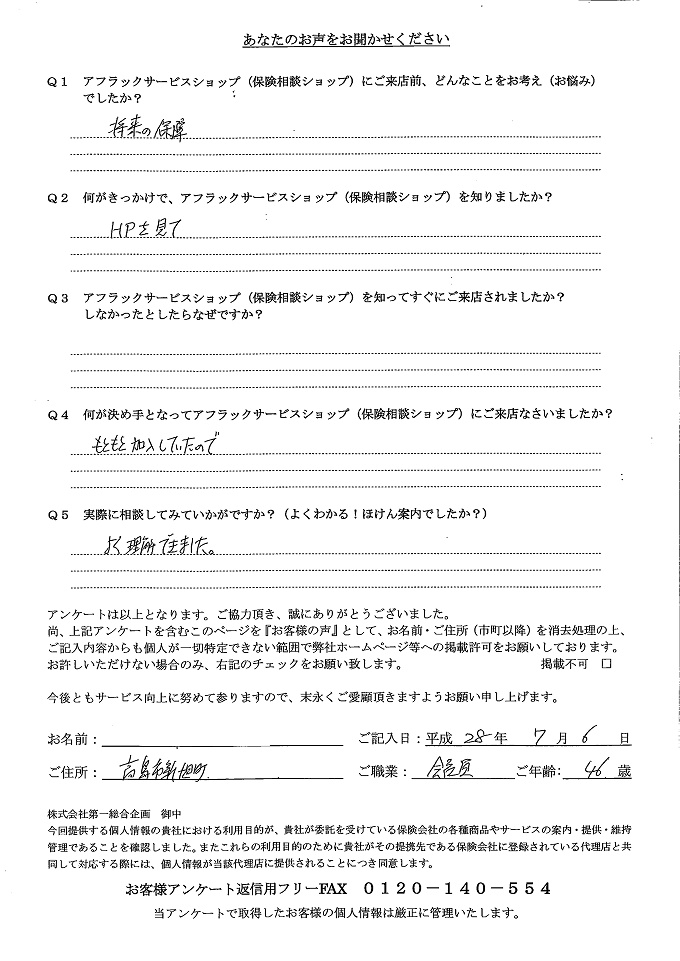 あなたのお声をお聞かせください
Q1 アフラックサービスショップ（保険相談ショップ）にご来店前、どんなことをお考え（お悩み）
でしたか？
将来の保障
Q2 何がきっかけで、アフラックサービスショップ（保険相談ショップ）を知りましたか？
HPを見て
Q3 アフラックサービスショップ（保険相談ショップ）を知ってすぐにご来店されましたか？
しなかったとしたらなぜですか？
Q4 何が決め手となってアフラックサービスショップ（保険相談ショップ）にご来店なさいましたか？
もともと加入していたので
Q5 実際に相談してみていかがですか？（よくわかる！ほけん案内でしたか？）
よく理解できました。
アンケートは以上となります。ご協力頂き、誠にありがとうございました。
尚、上記アンケートを含むこのページを『お客様の声』として、お名前・ご住所（市町以降）を消去処理の上、
ご記入内容からも個人が一切特定できない範囲で弊社ホームページ等への掲載許可をお願いしております。
お許しいただけない場合のみ、右記のチェックをお願い致します。 掲載不可 □
今後ともサービス向上に努めて参りますので、末永くご愛顧頂きますようお願い申し上げます。
お名前： ご記入日：平成 28 年 7 月 6 日
ご住所： 高島市新旭町 ご職業： 会社員 ご年齢： 46 歳
株式会社第一総合企画 御中
今回提供する個人情報の貴社における利用目的が、貴社が委託を受けている保険会社の各種商品やサービスの案内・提供・維持
管理であることを確認しました。またこれらの利用目的のために貴社がその提携先である保険会社に登録されている代理店と共
同して対応する際には、個人情報が当該代理店に提供されることにつき同意します。
お客様アンケート返信用フリーFAX 0120－140－554
当アンケートで取得したお客様の個人情報は厳正に管理いたします。